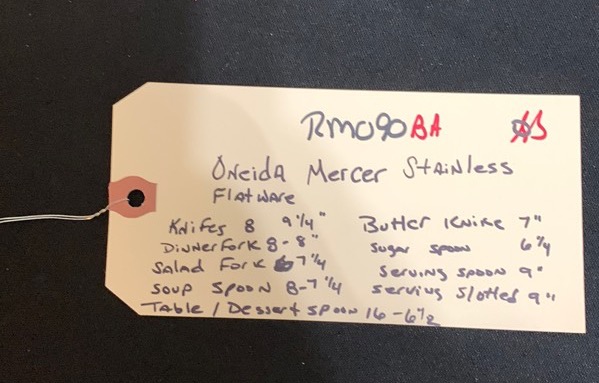 RM090BA
Oneida Mercer Stainless
Flatware
Knifes 8 9 1/4" Butler Knife 7"
Dinner Fork 8-8" Sugar Spoon 6 1/4
Salad Fork 7 1/4 Serving Spoon 9"
Soup Spoon 8-7 1/4 Serving Slotted 9"
Table / Dessert Spoon 16-6 1/2